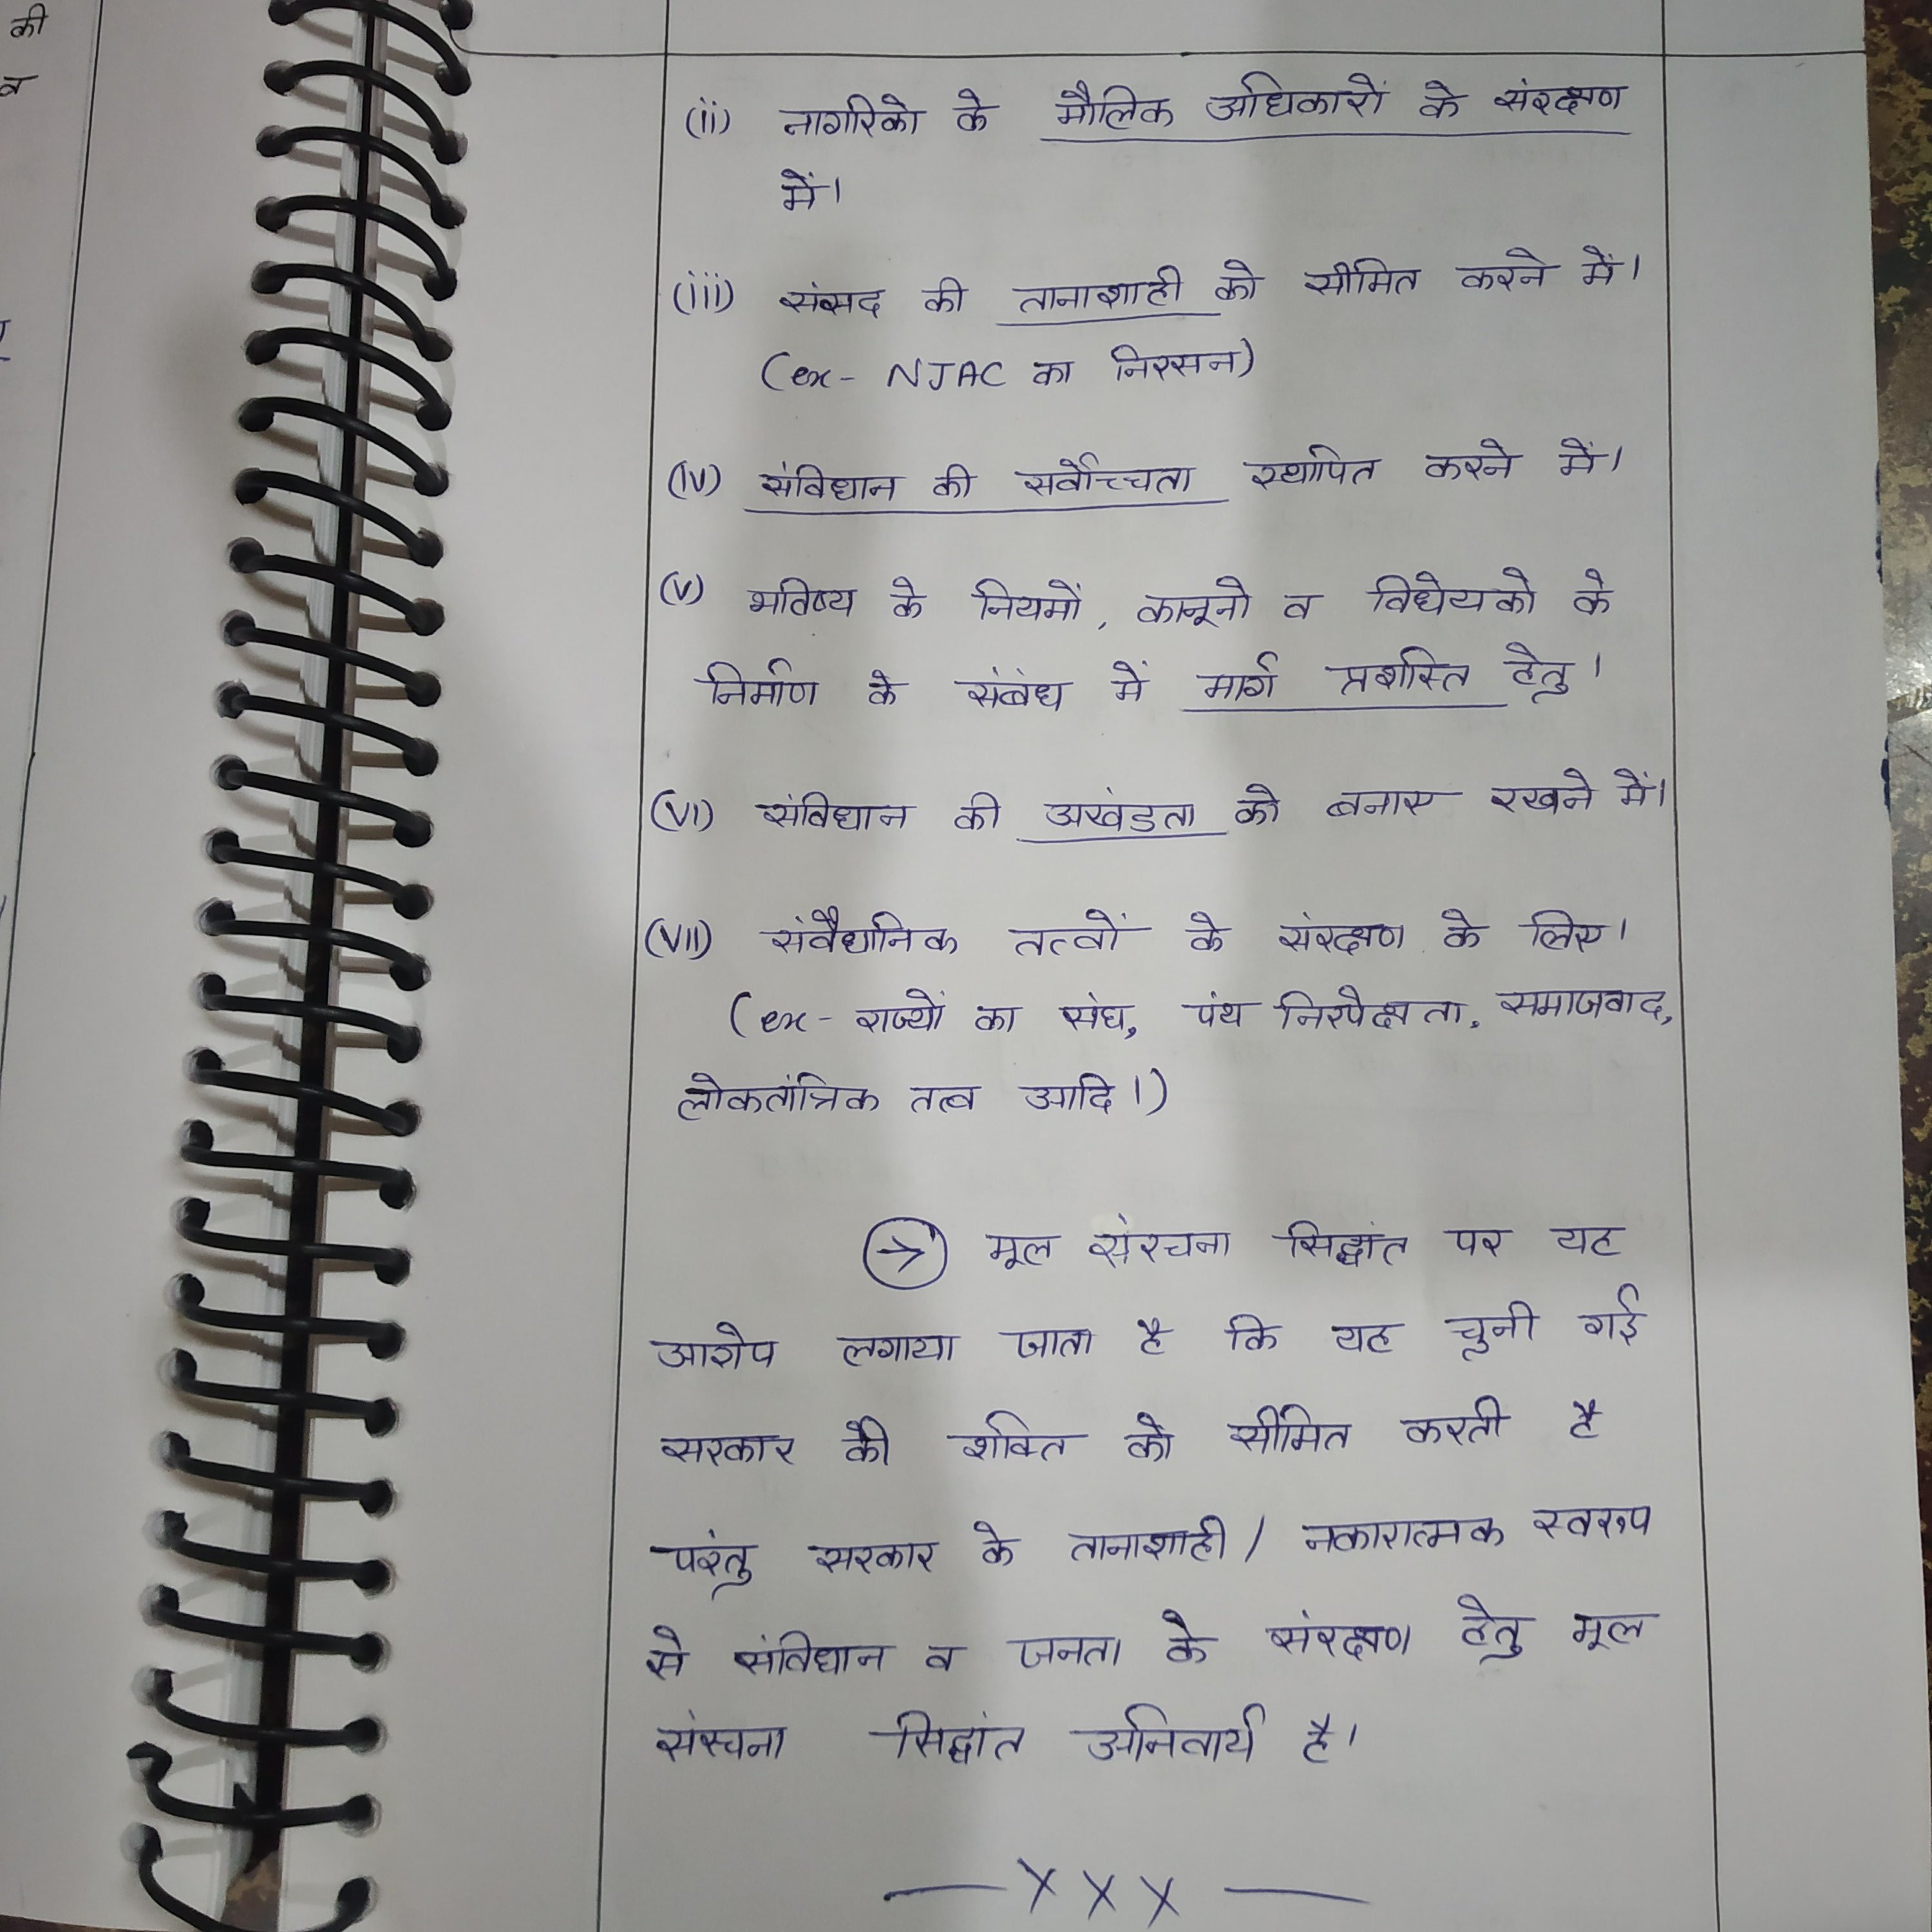 की
व
(ii) नागरिको के मौलिक अधिकारों के संरक्षण
में।
(iii) संसद की तानाशाही को सीमित करने में।
(ex- NJAC का निरसन)
(iv) संविधान की सर्वोच्चता स्थापित करने में।
(v) भविष्य के नियमों, कानूनो व विधेयको के
निर्माण के संबंध में मार्ग प्रशस्ति हेतु।
(vi) संविधान की अखंडता को बनाए रखने में।
(vii) संवैधानिक तत्वों के संरक्षण के लिए।
(ex- राज्यों का संघ, पंथ निरपेक्षता, समाजवाद,
लोकतांत्रिक तत्व आदि।)
→ मूल संरचना सिद्धांत पर यह
आरोप लगाया जाता है कि यह चुनी गई
सरकार की शक्ति को सीमित करती है
परंतु सरकार के तानाशाही / नकारात्मक स्वरूप
से संविधान व जनता के संरक्षण हेतु मूल
संरचना सिद्धांत अनिवार्य है।
— x x x —